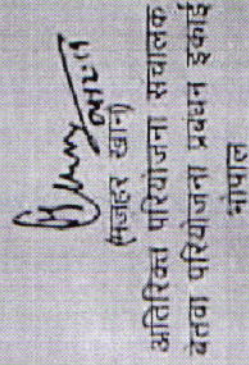 (मजहर खान)
अतिरिक्त परियोजना संचालक
बेतवा परियोजना प्रबंधन इकाई
भोपाल